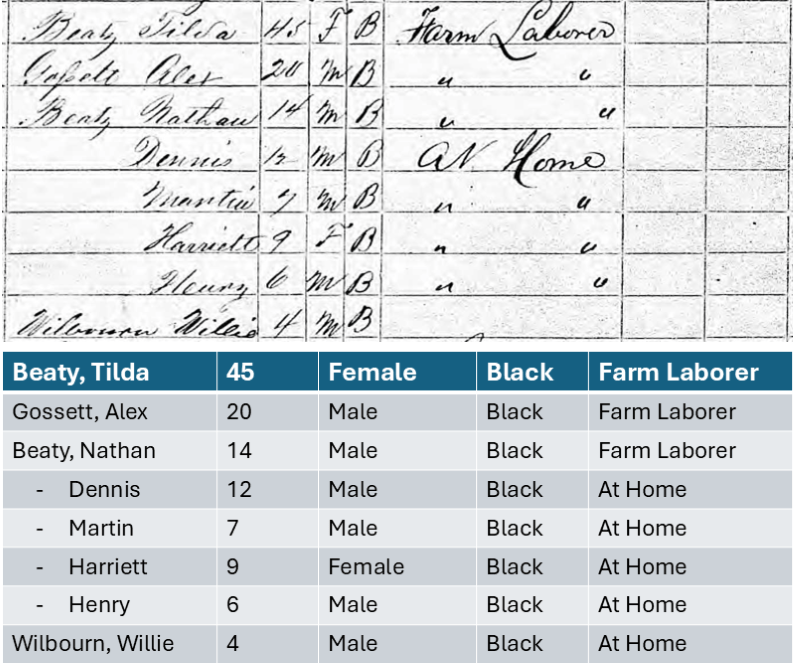 Beaty Tilda 45 F B Farm Laborer
Gossett Alex 20 M B " "
Beaty Nathan 14 M B " "
Dennis 12 M B At Home
Martin 7 M B " "
Harriett 9 F B " "
Henry 6 M B " "
Wilbourn Willie 4 M B
Beaty, Tilda 45 Female Black Farm Laborer
Gossett, Alex 20 Male Black Farm Laborer
Beaty, Nathan 14 Male Black Farm Laborer
- Dennis 12 Male Black At Home
- Martin 7 Male Black At Home
- Harriett 9 Female Black At Home
- Henry 6 Male Black At Home
Wilbourn, Willie 4 Male Black At Home